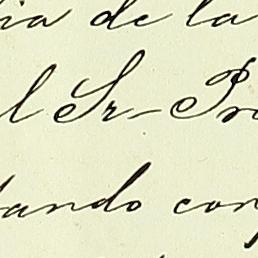 ia de la
l Sr- Pr
ando con